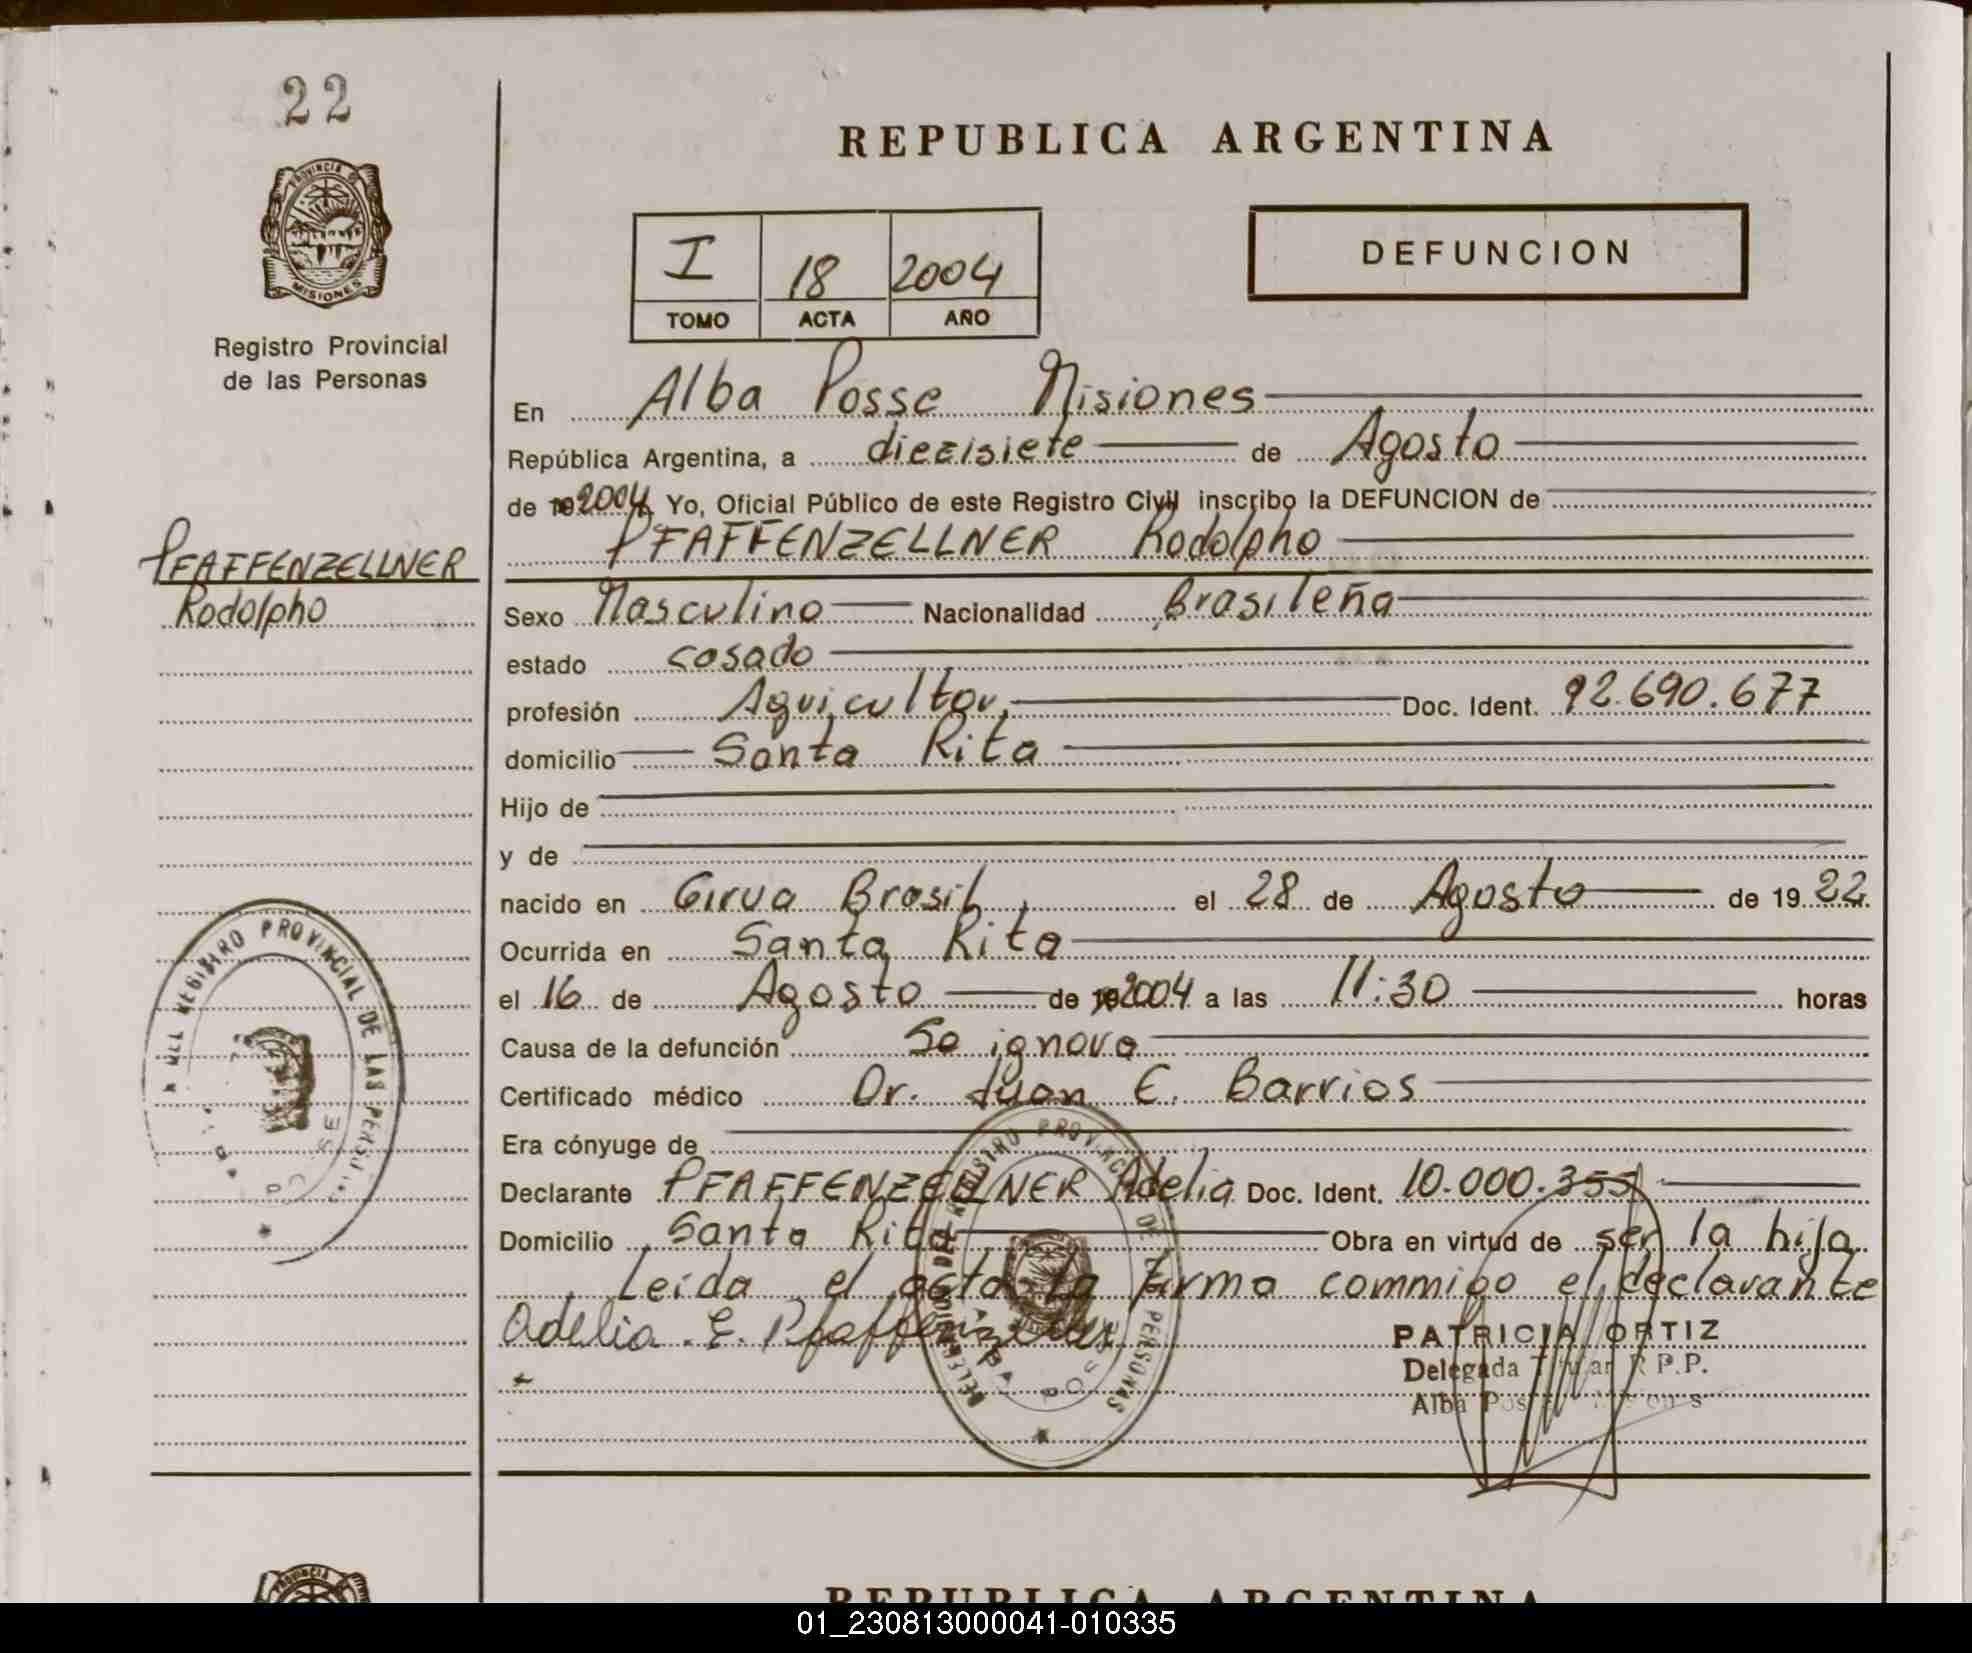 22
PROVINCIA DE
MISIONES
Registro Provincial
de las Personas
REPUBLICA ARGENTINA
I 18 2004
TOMO ACTA AÑO
DEFUNCION
En Alba Posse Misiones
República Argentina, a diezisiete de Agosto
de 19 2004 Yo, Oficial Público de este Registro Civil inscribo la DEFUNCION de
PFAFFENZELLNER Rodolpho
PFAFFENZELLNER
Rodolpho
Sexo Masculino Nacionalidad Brasileña
estado casado
profesión Agricultor Doc. Ident. 92.690.677
domicilio Santa Rita
Hijo de
y de
nacido en Girua Brasil el 28 de Agosto de 1922
Ocurrida en Santa Rita
el 16 de Agosto de 19 2004 a las 11:30 horas
Causa de la defunción Se ignora
Certificado médico Dr. Juan E. Barrios
Era cónyuge de
Declarante PFAFFENZELLNER Adelia Doc. Ident. 10.000.355
Domicilio Santa Rita Obra en virtud de ser la hija
Leida el acta la firma commigo el declarante
Adelia E. Pfaffenzeller
PATRICIA ORTIZ
Delegada Titular R.P.P.
Alba Posse Misiones
REGISTRO PROVINCIAL DE LAS PERSONAS
DEL REGISTRO PROVINCIAL DE LAS PERSONAS
ALBA POSSE
REPUBLICA ARGENTINA
01_230813000041-010335